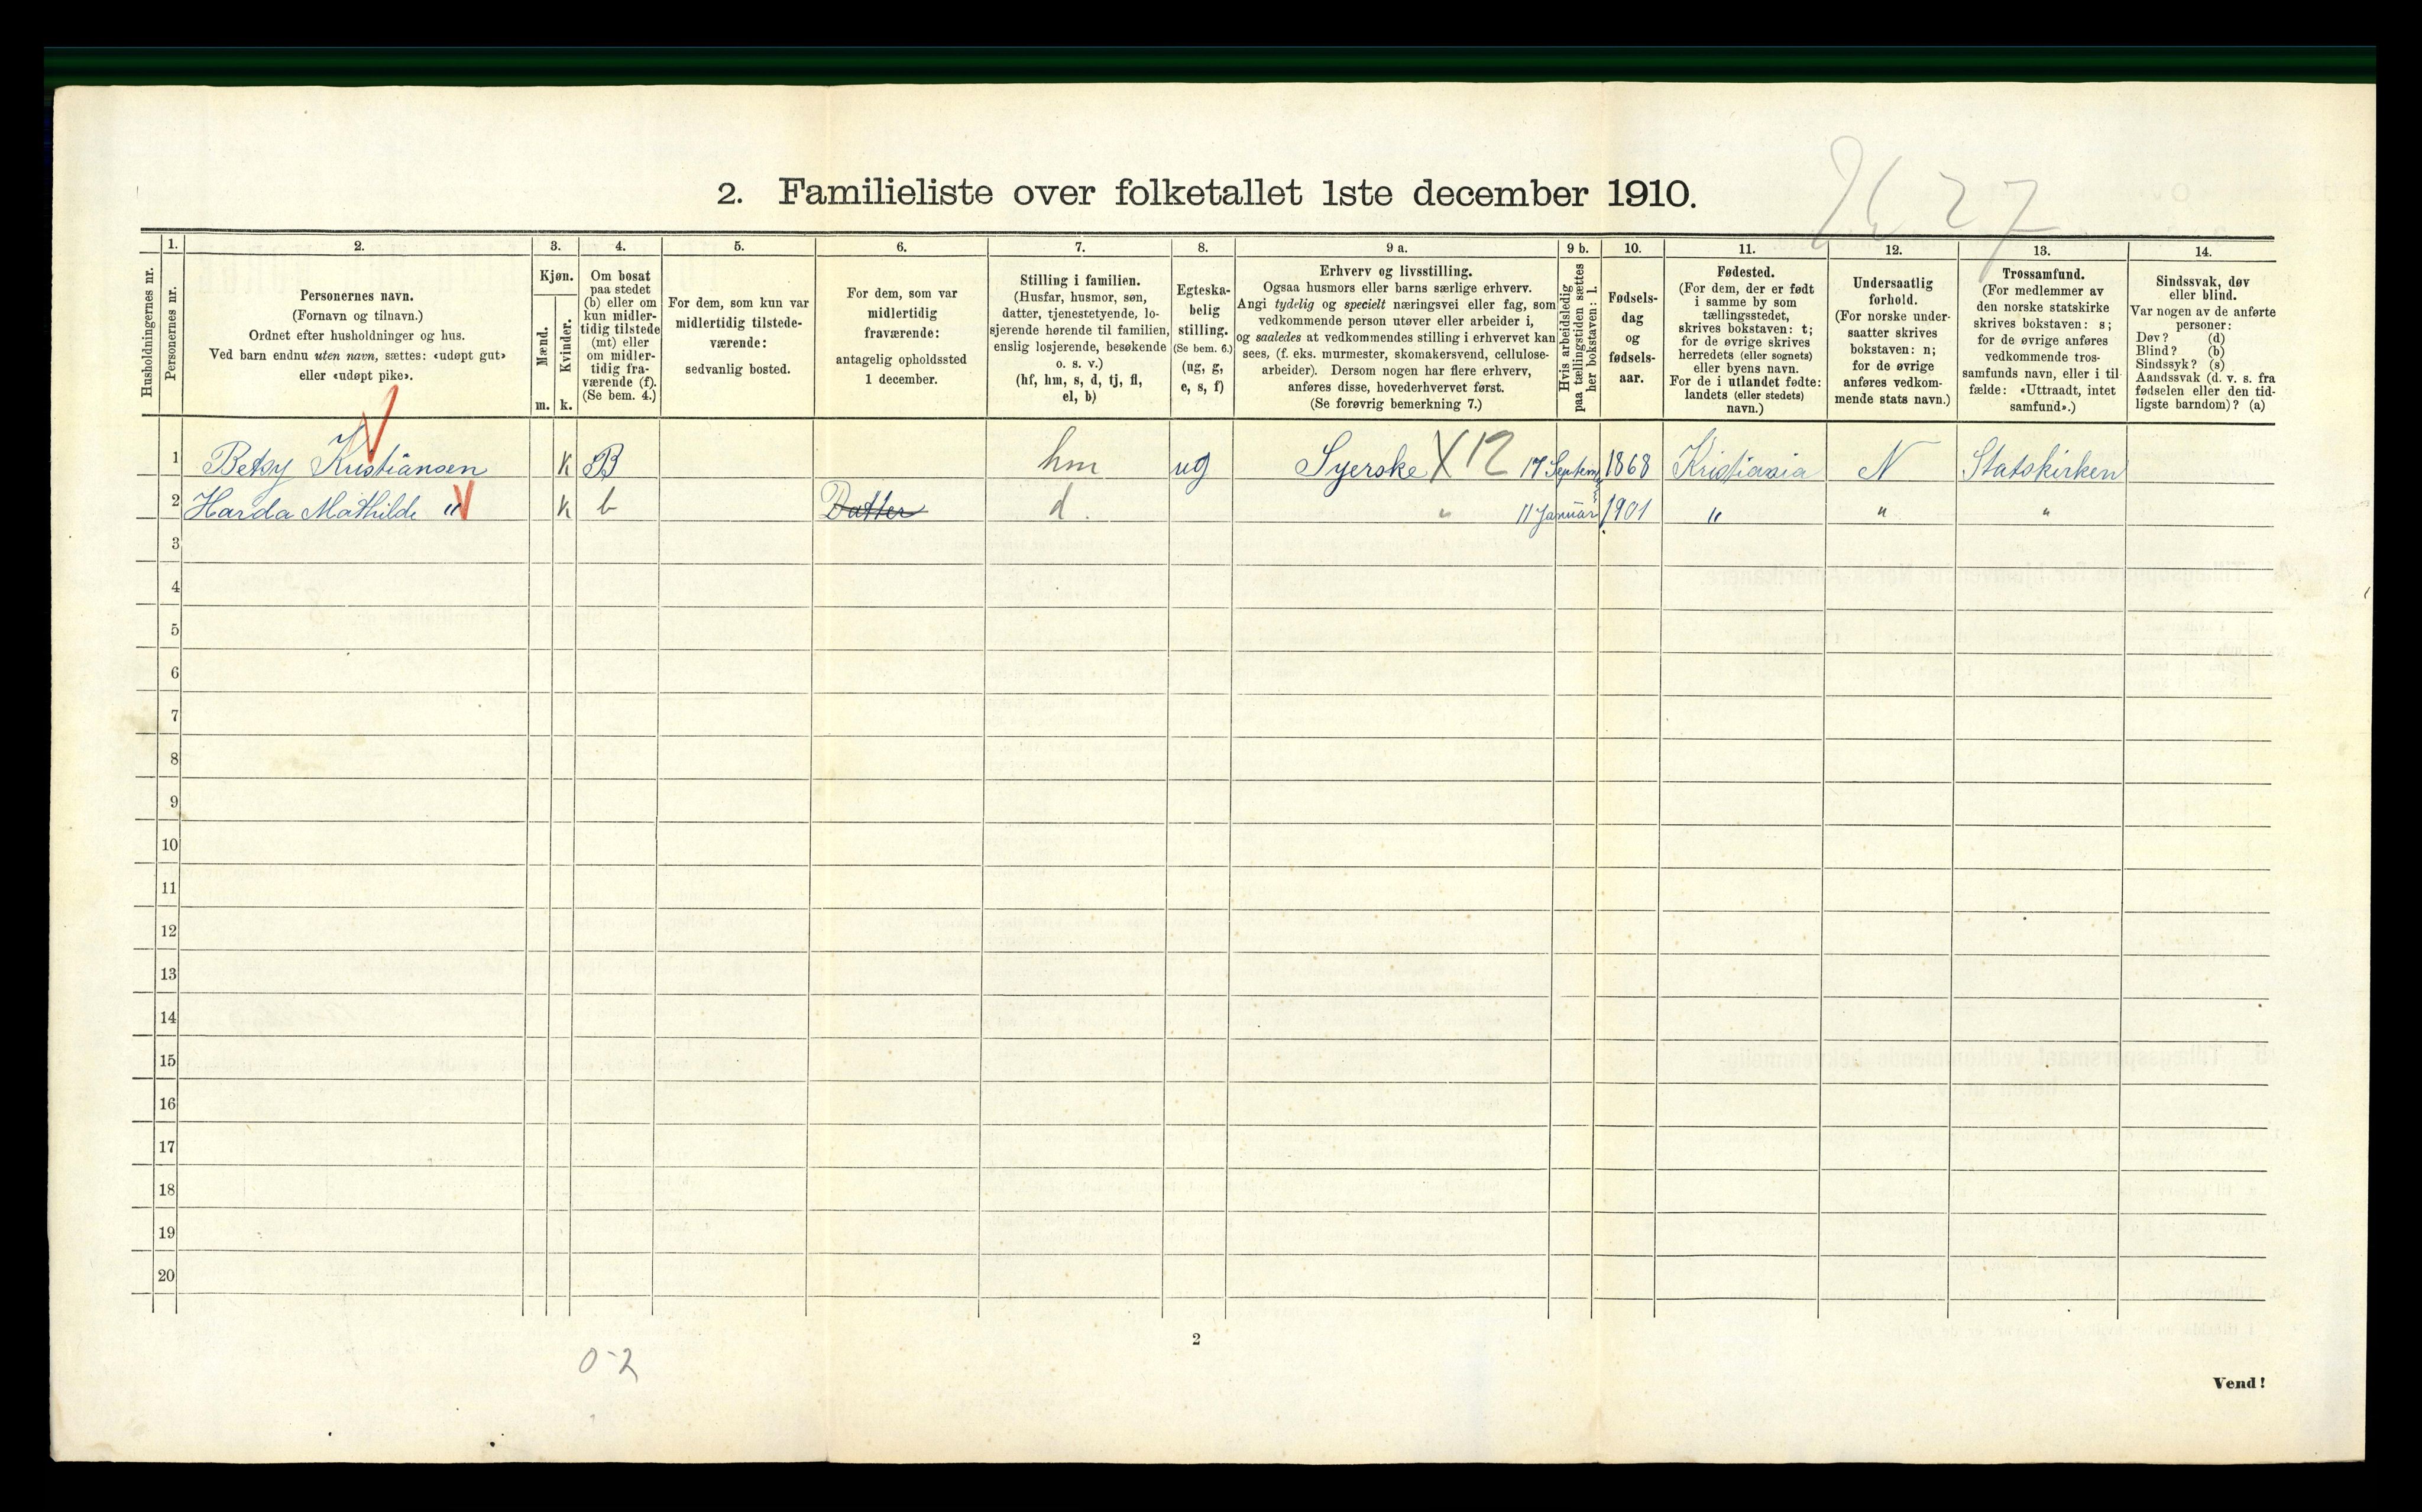 2627
2. Familieliste over folketallet 1ste december 1910.
Husholdningernes nr.
1.
Personernes nr.
2.
Personernes navn.
(Fornavn og tilnavn.)
Ordnet efter husholdninger og hus.
Ved barn endnu uten navn, sættes: «udøpt gut»
eller «udøpt pike».
3.
Kjøn.
Mænd.
m.
Kvinder.
k.
4.
Om bosat
paa stedet
(b) eller om
kun midler-
tidig tilstede
(mt) eller
om midler-
tidig fra-
værende (f).
(Se bem. 4.)
5.
For dem, som kun var
midlertidig tilstede-
værende:
sedvanlig bosted.
6.
For dem, som var
midlertidig
fraværende:
antagelig opholdssted
1 december.
7.
Stilling i familien.
(Husfar, husmor, søn,
datter, tjenestetyende, lo-
sjerende hørende til familien,
enslig losjerende, besøkende
o. s. v.)
(hf, hm, s, d, tj, fl,
el, b)
8.
Egteska-
belig
stilling.
(Se bem. 6.)
(ug, g,
e, s, f)
9 a.
Erhverv og livsstilling.
Ogsaa husmors eller barns særlige erhverv.
Angi tydelig og specielt næringsvei eller fag, som
vedkommende person utøver eller arbeider i,
og saaledes at vedkommendes stilling i erhvervet kan
sees, (f. eks. murmester, skomakersvend, cellulose-
arbeider). Dersom nogen har flere erhverv,
anføres disse, hovederhvervet først.
(Se forøvrig bemerkning 7.)
9 b.
Hvis arbeidsledig
paa tællingstiden sættes
her bokstaven: l.
10.
Fødsels-
dag
og
fødsels-
aar.
11.
Fødested.
(For dem, der er født
i samme by som
tællingsstedet,
skrives bokstaven: t;
for de øvrige skrives
herredets (eller sognets)
eller byens navn.
For de i utlandet fødte:
landets (eller stedets)
navn.)
12.
Undersaatlig
forhold.
(For norske under-
saatter skrives
bokstaven: n;
for de øvrige
anføres vedkom-
mende stats navn.)
13.
Trossamfund.
(For medlemmer av
den norske statskirke
skrives bokstaven: s;
for de øvrige anføres
vedkommende tros-
samfunds navn, eller i til-
fælde: «Uttraadt, intet
samfund».)
14.
Sindssvak, døv
eller blind.
Var nogen av de anførte
personer:
Døv? (d)
Blind? (b)
Sindssyk? (s)
Aandssvak (d. v. s. fra
fødselen eller den tid-
ligste barndom)? (a)
1 Betsy Kristiansen K B hm ug Syerske X 12 17 Septem 1868 Kristiania N Statskirken
2 Harda Mathilde " K b Datter d. " 11 Januar 1901 " " "
3
4
5
6
7
8
9
10
11
12
13
14
15
16
17
18
19
20
2
0-2
Vend!